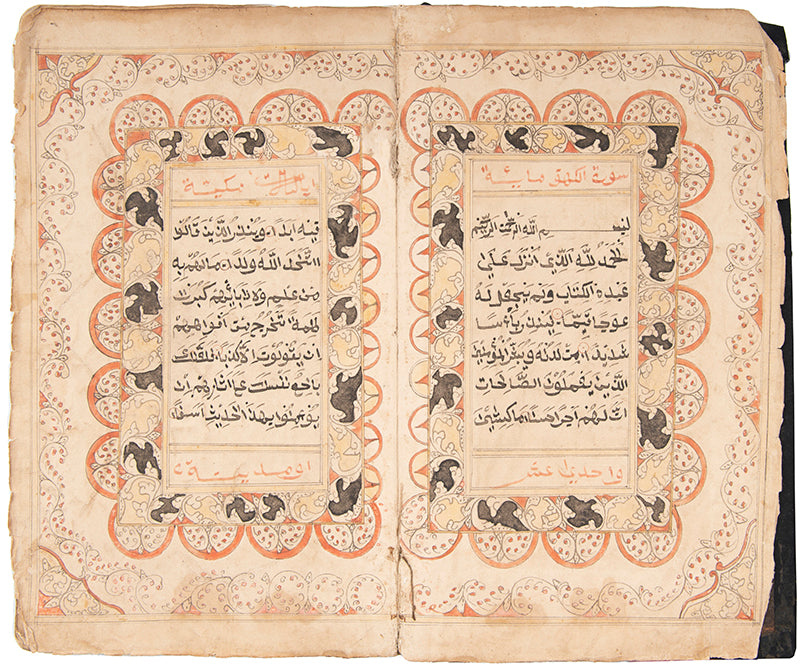 سورة الكهف مائة
بسم الله الرحمن الرحيم
الحمد لله الذي انزل على
عبده الكتاب ولم يجعل له
عوجا قيما لينذر بأسا
شديدا من لدنه ويبشر المؤمنين
الذين يعملون الصالحات
ان لهم اجرا حسنا ماكثين
واحدى عشر
ايات مكية
فيه ابدا وينذر الذين قالوا
اتخذ الله ولدا ما لهم به
من علم ولا لابائهم كبرت
كلمة تخرج من افواههم
ان يقولون الا كذبا فلعلك
باخع نفسك على اثارهم ان
يومنوا بهذا الحديث اسفا